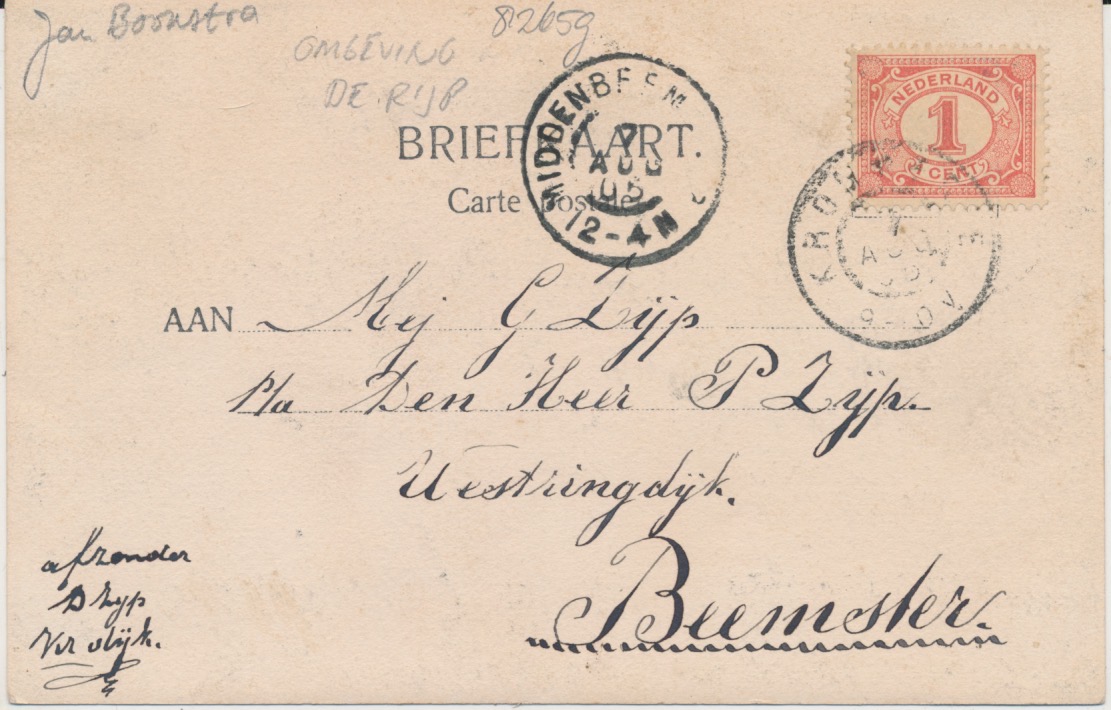 Jan Boonstra
82659
OMGEVING
DE RIJP
NEDERLAND
1
CENT
BRIEFKAART.
Carte postale
MIDDENBEEM
7
AUG
05
12-4N
KROMMENIE
7
AUG
05
9-10V
AAN Mej G Zijp
P/a Den Heer P Zijp.
Westringdijk.
Beemster.
afzender
D Zijp
dijk.